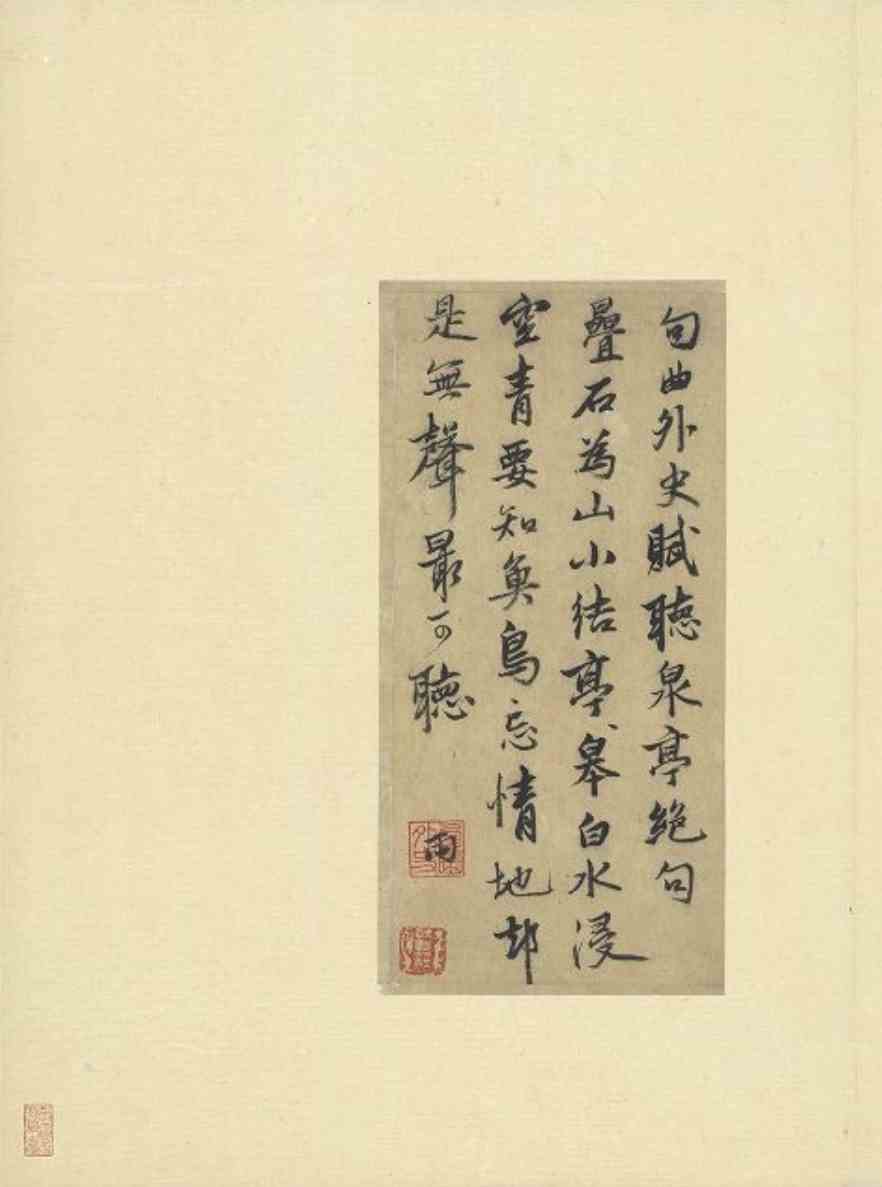 句曲外史賦聽泉亭絕句
疊石為山小結亭皋白水浸
空青要知魚鳥忘情地却
是無聲最可聽
雨